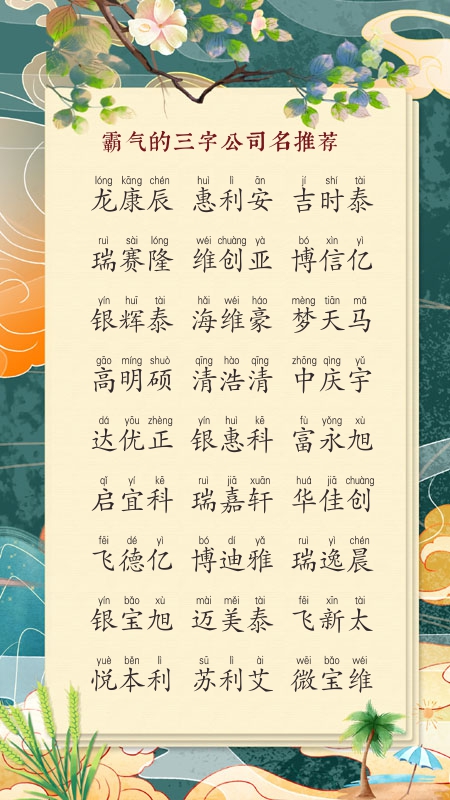 霸气的三字公司名推荐
lóng kāng chén huì lì ān jí shí tài
龙康辰 惠利安 吉时泰
ruì sài lóng wéi chuàng yà bó xìn yì
瑞赛隆 维创亚 博信亿
yín huī tài hǎi wéi háo mèng tiān mǎ
银辉泰 海维豪 梦天马
gāo míng shuò qīng hào qīng zhōng qìng yǔ
高明硕 清浩清 中庆宇
dá yōu zhèng yín huì kē fù yǒng xù
达优正 银惠科 富永旭
qǐ yí kē ruì jiā xuān huá jiā chuàng
启宜科 瑞嘉轩 华佳创
fēi dé yì bó dí yǎ ruì yì chén
飞德亿 博迪雅 瑞逸晨
yín bǎo xù mài měi tài fēi xīn tài
银宝旭 迈美泰 飞新太
yuè běn lì sū lì ài wēi bǎo wéi
悦本利 苏利艾 微宝维